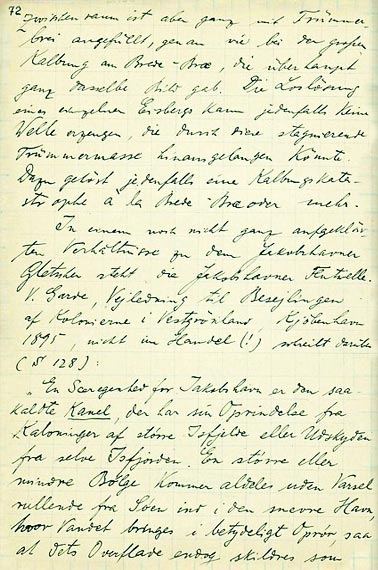 72
zwischenraum ist aber ganz mit Trümmer-
brei angefüllt, genau wie bei der großen
Kalbung am Brede-Bræ, die überhaupt
ganz dasselbe Bild gab. Die Loslösung
eines einzelnen Eisbergs kann jedenfalls keine
Welle erzeugen, die durch diese stagnierende
Trümmermasse hinausgelangen könnte.
Dazu gehört jedenfalls eine Kalbungskata-
strophe a la Brede-Bræ oder mehr.
In einem noch nicht ganz aufgeklär-
ten Verhältnisse zu dem Jakobshavner
Gletscher steht die Jakobshavner Flutwelle.
V. Garde, Vejledning til Besejlingen
af Kolonierne i Vestgrönland, Kjöbenhavn
1895, nicht im Handel (!) schreibt darüber
(S 128):
„En Særegenhed for Jakobshavn er den saa-
kaldte Kanel, der har sin Oprindelse fra
Kalvninger af större Isfjelde eller Udskyden
fra selve Isfjorden. En större eller
mindre Bölge kommer aldeles uden Varsel
rullende fra Söen ind i den snevre Havn,
hvor Vandet bringes i betydeligt Oprör saa
at dets Overflade endog skildres som